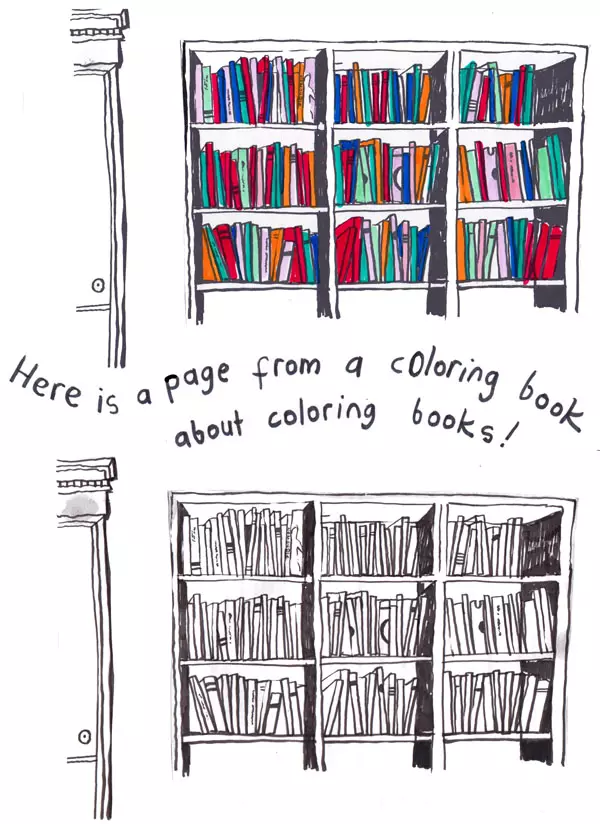 Here is a page from a coloring book
about coloring books!